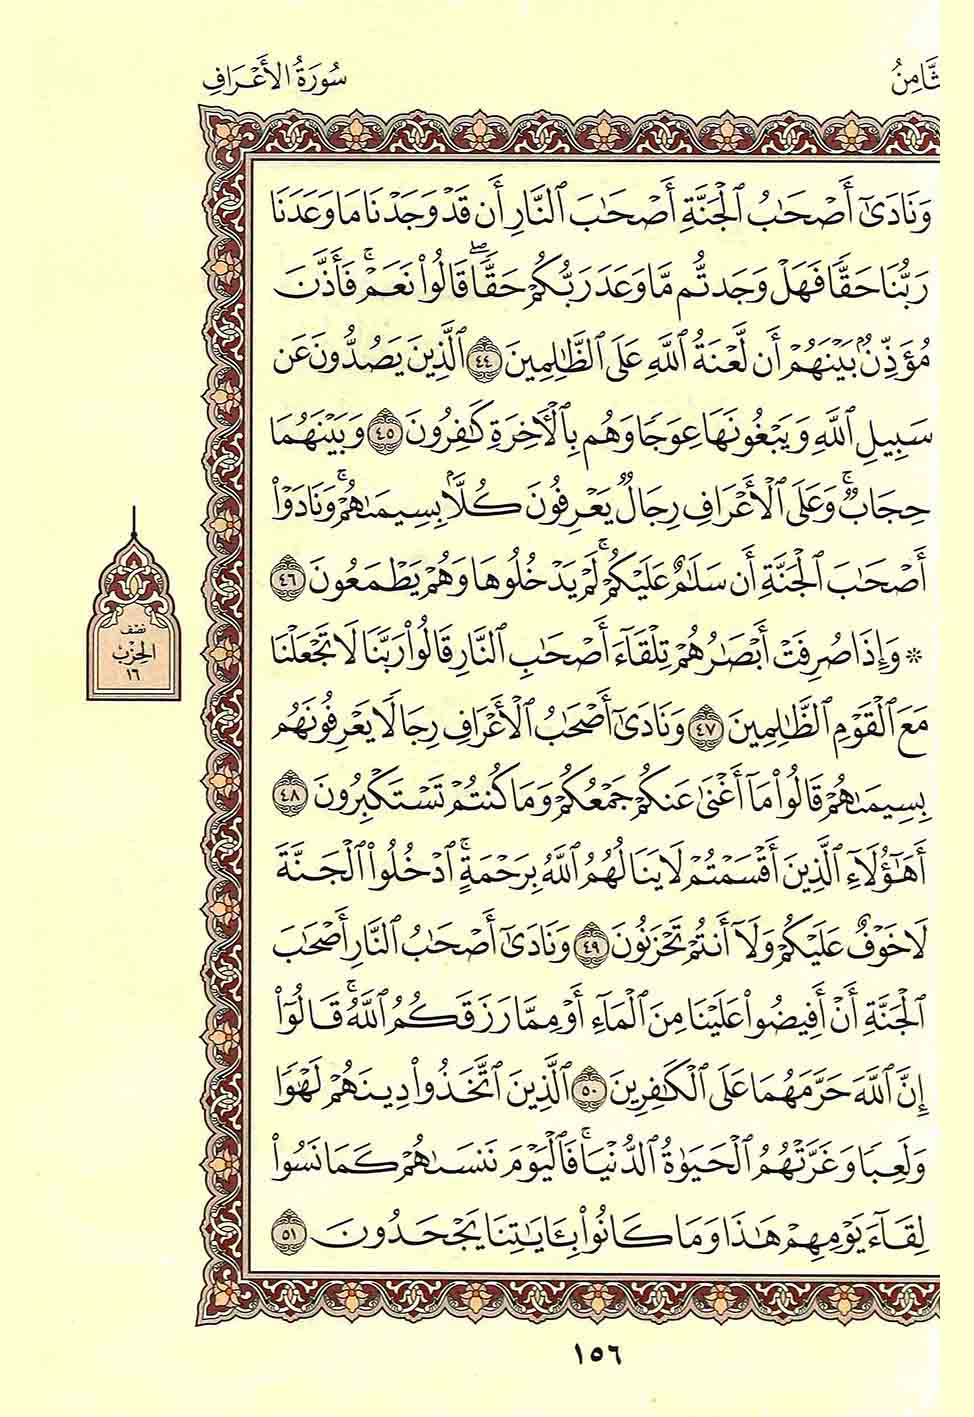 ثَّامِنُ
سُورَةُ الأَعْرَافِ
وَنَادَىٰٓ أَصْحَٰبُ ٱلْجَنَّةِ أَصْحَٰبَ ٱلنَّارِ أَن قَدْ وَجَدْنَا مَا وَعَدَنَا
رَبُّنَا حَقًّا فَهَلْ وَجَدتُّم مَّا وَعَدَ رَبُّكُمْ حَقًّا ۖ قَالُوا۟ نَعَمْ ۚ فَأَذَّنَ
مُؤَذِّنٌۢ بَيْنَهُمْ أَن لَّعْنَةُ ٱللَّهِ عَلَى ٱلظَّٰلِمِينَ ٤٤ ٱلَّذِينَ يَصُدُّونَ عَن
سَبِيلِ ٱللَّهِ وَيَبْغُونَهَا عِوَجًا وَهُم بِٱلْءَاخِرَةِ كَٰفِرُونَ ٤٥ وَبَيْنَهُمَا
حِجَابٌ ۚ وَعَلَى ٱلْأَعْرَافِ رِجَالٌ يَعْرِفُونَ كُلًّۢا بِسِيمَىٰهُمْ ۚ وَنَادَوْا۟
أَصْحَٰبَ ٱلْجَنَّةِ أَن سَلَٰمٌ عَلَيْكُمْ ۚ لَمْ يَدْخُلُوهَا وَهُمْ يَطْمَعُونَ ٤٦
* وَإِذَا صُرِفَتْ أَبْصَٰرُهُمْ تِلْقَآءَ أَصْحَٰبِ ٱلنَّارِ قَالُوا۟ رَبَّنَا لَا تَجْعَلْنَا
مَعَ ٱلْقَوْمِ ٱلظَّٰلِمِينَ ٤٧ وَنَادَىٰٓ أَصْحَٰبُ ٱلْأَعْرَافِ رِجَالًا يَعْرِفُونَهُم
بِسِيمَىٰهُمْ قَالُوا۟ مَآ أَغْنَىٰ عَنكُمْ جَمْعُكُمْ وَمَا كُنتُمْ تَسْتَكْبِرُونَ ٤٨
أَهَٰٓؤُلَآءِ ٱلَّذِينَ أَقْسَمْتُمْ لَا يَنَالُهُمُ ٱللَّهُ بِرَحْمَةٍ ۚ ٱدْخُلُوا۟ ٱلْجَنَّةَ
لَا خَوْفٌ عَلَيْكُمْ وَلَآ أَنتُمْ تَحْزَنُونَ ٤٩ وَنَادَىٰٓ أَصْحَٰبُ ٱلنَّارِ أَصْحَٰبَ
ٱلْجَنَّةِ أَنْ أَفِيضُوا۟ عَلَيْنَا مِنَ ٱلْمَآءِ أَوْ مِمَّا رَزَقَكُمُ ٱللَّهُ ۚ قَالُوٓا۟
إِنَّ ٱللَّهَ حَرَّمَهُمَا عَلَى ٱلْكَٰفِرِينَ ٥٠ ٱلَّذِينَ ٱتَّخَذُوا۟ دِينَهُمْ لَهْوًا
وَلَعِبًا وَغَرَّتْهُمُ ٱلْحَيَوٰةُ ٱلدُّنْيَا ۚ فَٱلْيَوْمَ نَنسَىٰهُمْ كَمَا نَسُوا۟
لِقَآءَ يَوْمِهِمْ هَٰذَا وَمَا كَانُوا۟ بِـَٔايَٰتِنَا يَجْحَدُونَ ٥١
نِصْف
الحِزْب
١٦
١٥٦